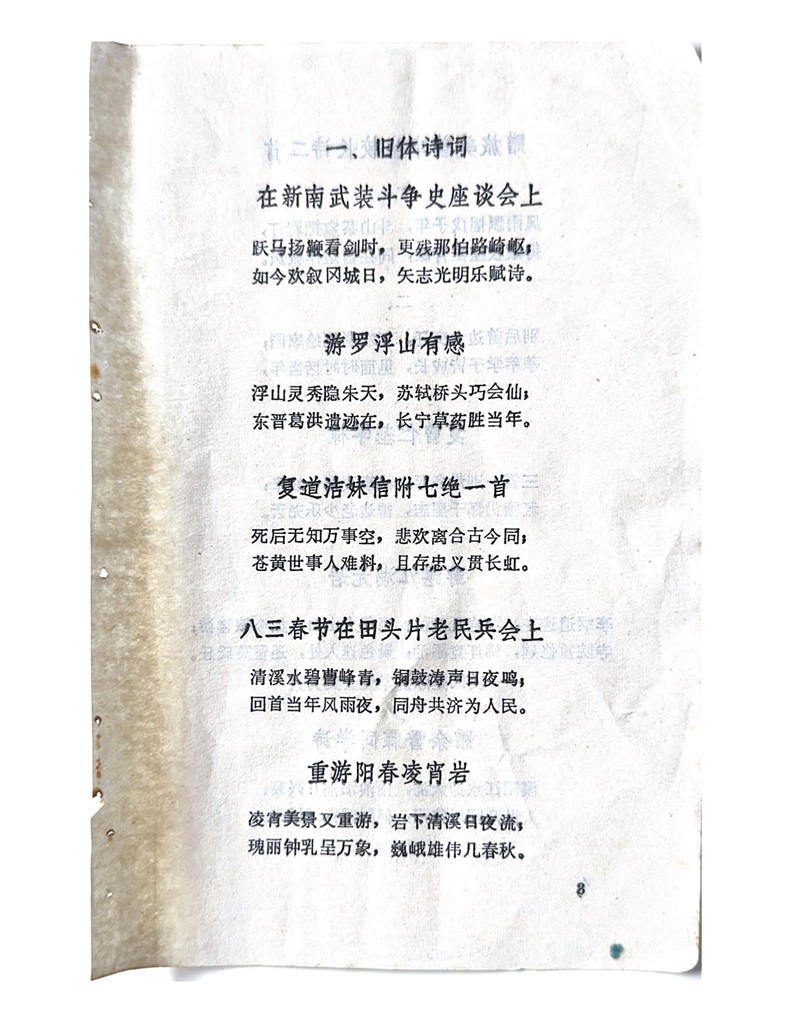 一、旧体诗词
在新南武装斗争史座谈会上
跃马扬鞭看剑时，更残那怕路崎岖；
如今欢叙冈城日，矢志光明乐赋诗。
游罗浮山有感
浮山灵秀隐朱天，苏轼桥头巧会仙；
东晋葛洪遗迹在，长宁草药胜当年。
复道洁妹信附七绝一首
死后无知万事空，悲欢离合古今同；
苍黄世事人难料，且存忠义贯长虹。
八三春节在田头片老民兵会上
清溪水碧曹峰青，铜鼓涛声日夜鸣；
回首当年风雨夜，同舟共济为人民。
重游阳春凌宵岩
凌宵美景又重游，岩下清溪日夜流；
瑰丽钟乳呈万象，巍峨雄伟几春秋。
8